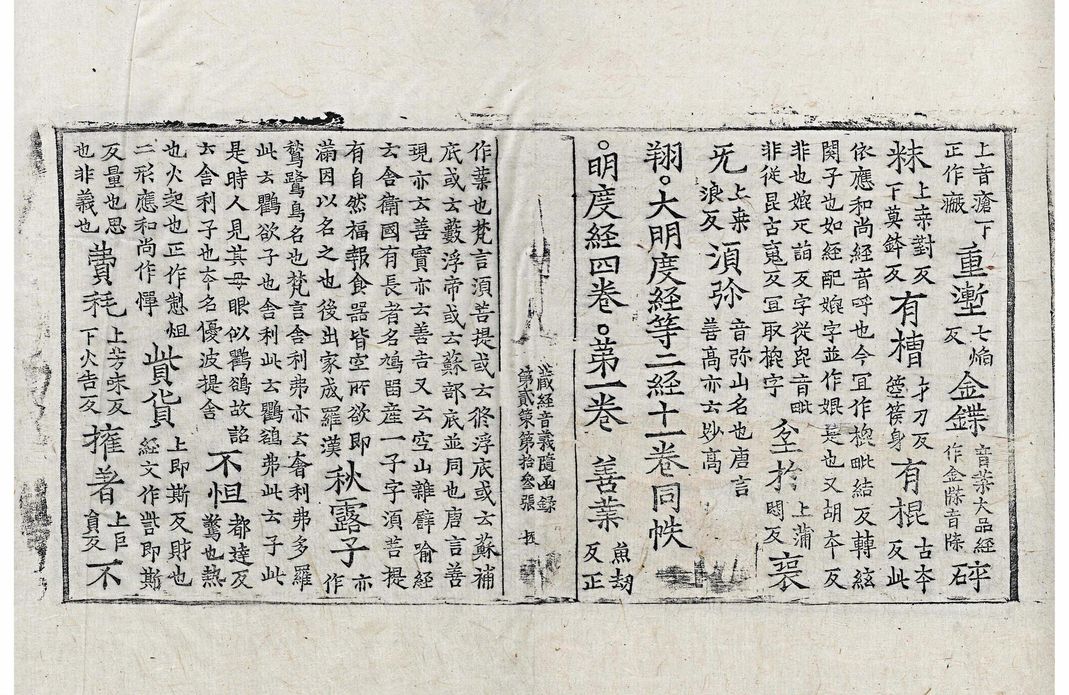 上音瘡丁正作瘷重塹七焰反金鍱音葉大品經作金牒音牒碎
粖上桒對反下莫鉢反有槽才刀反箜篌身有棍古夲反此
依應和尚經音呼也今冝作棍毗結反轉絃
関子也如經配緄字並作婫是也又胡夲反
非也婫又詣反字從毘音毗
非從昆古䰟反冝取棍字坌扵上蒲悶反裒
旡上桒浪反湏弥音弥山名也唐言善髙亦云妙髙
翔。大明度經等二經十一卷同帙
。明度経四卷。第一卷 善業魚劫反正
藏經音義隨函錄
第貳 第拾叅張
作業也梵言湏菩提或云修浮底或云蘇補
底或云藪浮帝或云蘇部底並同也唐言善
現亦云善實亦云善吉又云空山雜譬喻經
云舍衛國有長者名鳩留産一子字湏菩提
有自然福報食器皆空所欲即
滿因以名之也後出家成羅漢秋露子亦作
鶖鷺鳥名也梵言舍利弗亦云奢利弗多羅
此云鸜欲子也舍利此云鸜鵒弗此云子此
是時人見其母眼似鸜鵒故詺
云舍利子也夲名優波提舍不怛都達反驚也熱
也火起也正作㥍怛
二形應和尚作憚貲貨上即斯反財也經文作訾即斯
反量也思
也非義也費耗上芳味反下火告反擁著上扵貟反不